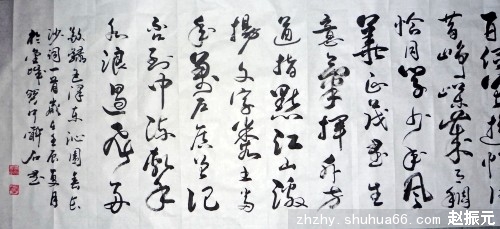 百侣曾游忆往
昔峥嵘岁月稠
恰同学少年风
华正茂书生
意气挥斥方
遒指点江山激
扬文字粪土当
年万户侯曾记
否到中流击
水浪遏飞舟
敬录毛泽东沁园春长
沙词一首岁在夏月
zhzhy.shuhua66.com 赵振元